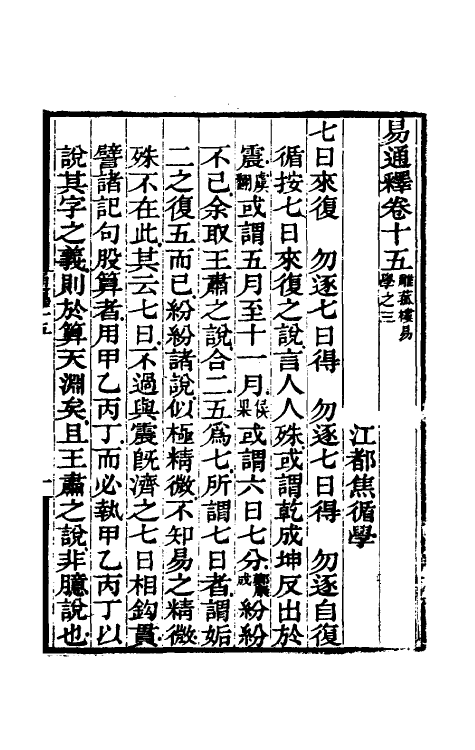 易通釋卷十五 雕菰樓易學之三
江都焦循學
七日來復　勿逐七日得　勿逐七日得　勿逐自復
循按七日來復之說言人人殊或謂乾成坤反出於
震虞翻或謂五月至十一月侯果或謂六日七分鄭康成紛紛
不已余取王肅之說合二五爲七所謂七日者謂姤
二之復五而已紛紛諸說似極精微不知易之精微
殊不在此其云七日不過與震旣濟之七日相鉤貫
譬諸記句股算者用甲乙丙丁而必執甲乙丙丁以
說其字之義則於算天淵矣且王肅之說非臆說也